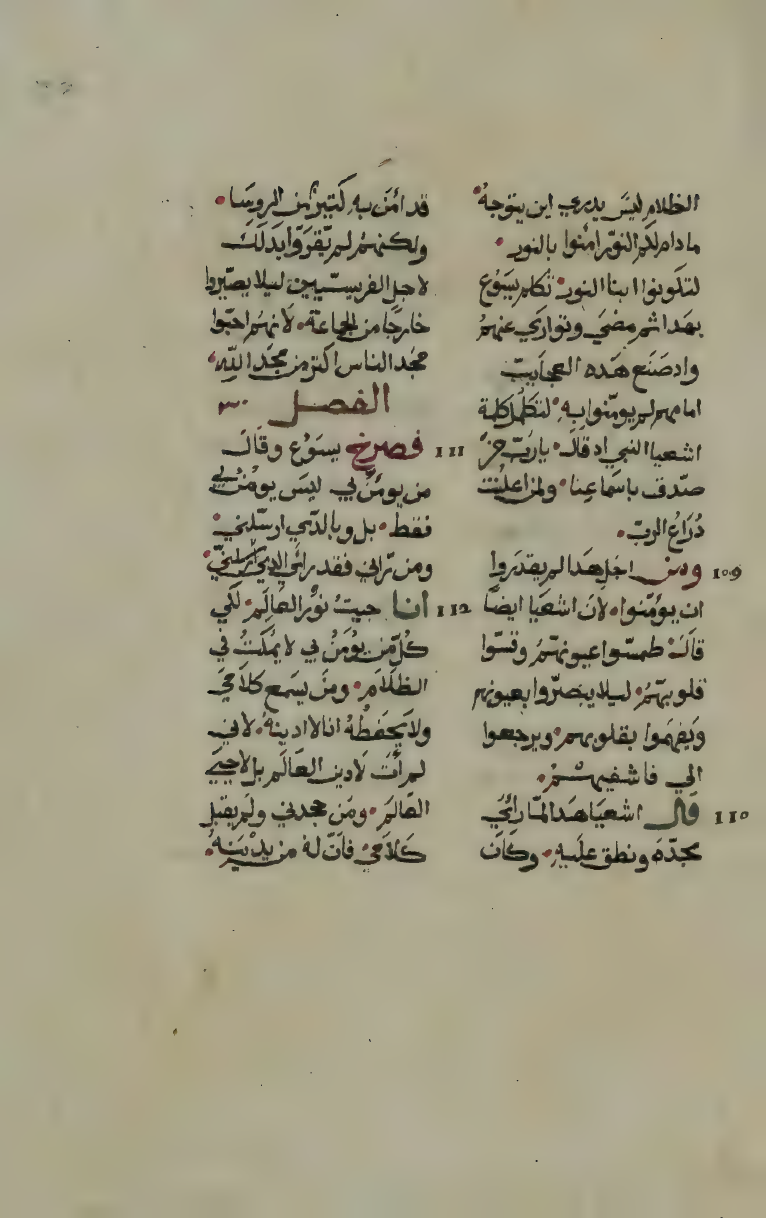 الظلام ليسَ يدري اين يتوجهُ
مادام لكم النوّر امنُوا بالنور
لتكونوا ابنا النور تكلم يسَوُع
بهدا ثمر مضَي وتواري عنهمُ
واد صَنَع هَده العجايبَ
امامهم لم يومّنوا بهِ لتكمل كلمة
اشعيا النبي اد قالَ يارَبّ منَ
صَدق باسَماعنا ولمن اعلِنْت
دُرَاعُ الربّ
109 ومن اجل هَدا لم يقدَروا
ان يومّنوا لانَ اشعَيا ايضًا
قالَ طمسّوا عيونهَمُ وقسّوا
قلوبهَمُ ليلا يبصَرّوا بعيونهم
ويَفهَموا بقلوبهم ويرجعوا
الي فاشفيهمْ
110 قال اشعيَا هَدا لمّا رائَي
مجدّهَ ونطق علَيهِ وكان
قد امَنَ بهِ كتيرُ من الروسَا
ولكنهمُ لم يَقرَوّا بدلكَ
لاجل الفريسّيين ليلا يصَيّروا
خارجًا من الجماعة لانهَمُ احبّوا
مجَد الناس اكتر من مجَد اللّه
الفصل ٣٠
111 فصرخ يسَوُع وقالَ
من يومَنُ بي ليسَ يومُن بي
فقط بل وبالدّي ارسَلني
ومن رَاني فقد رائَي الدي ارسَلنيّ
112 انا جيتُ نوُر العَالمَ لكي
كُلّ من يوُمَنُ بي لا يمُكتُ في
الظلَامَ ومنَ يسَمع كلَامَي
ولا يَحفَظهُ انا لا ادينهُ لاني
لم اتَ لادين العَالَم بل لاحييَ
العَالمَ ومَن جحدني ولم يقبل
كَلاَمي فانّ لهُ من يدْينَهُ